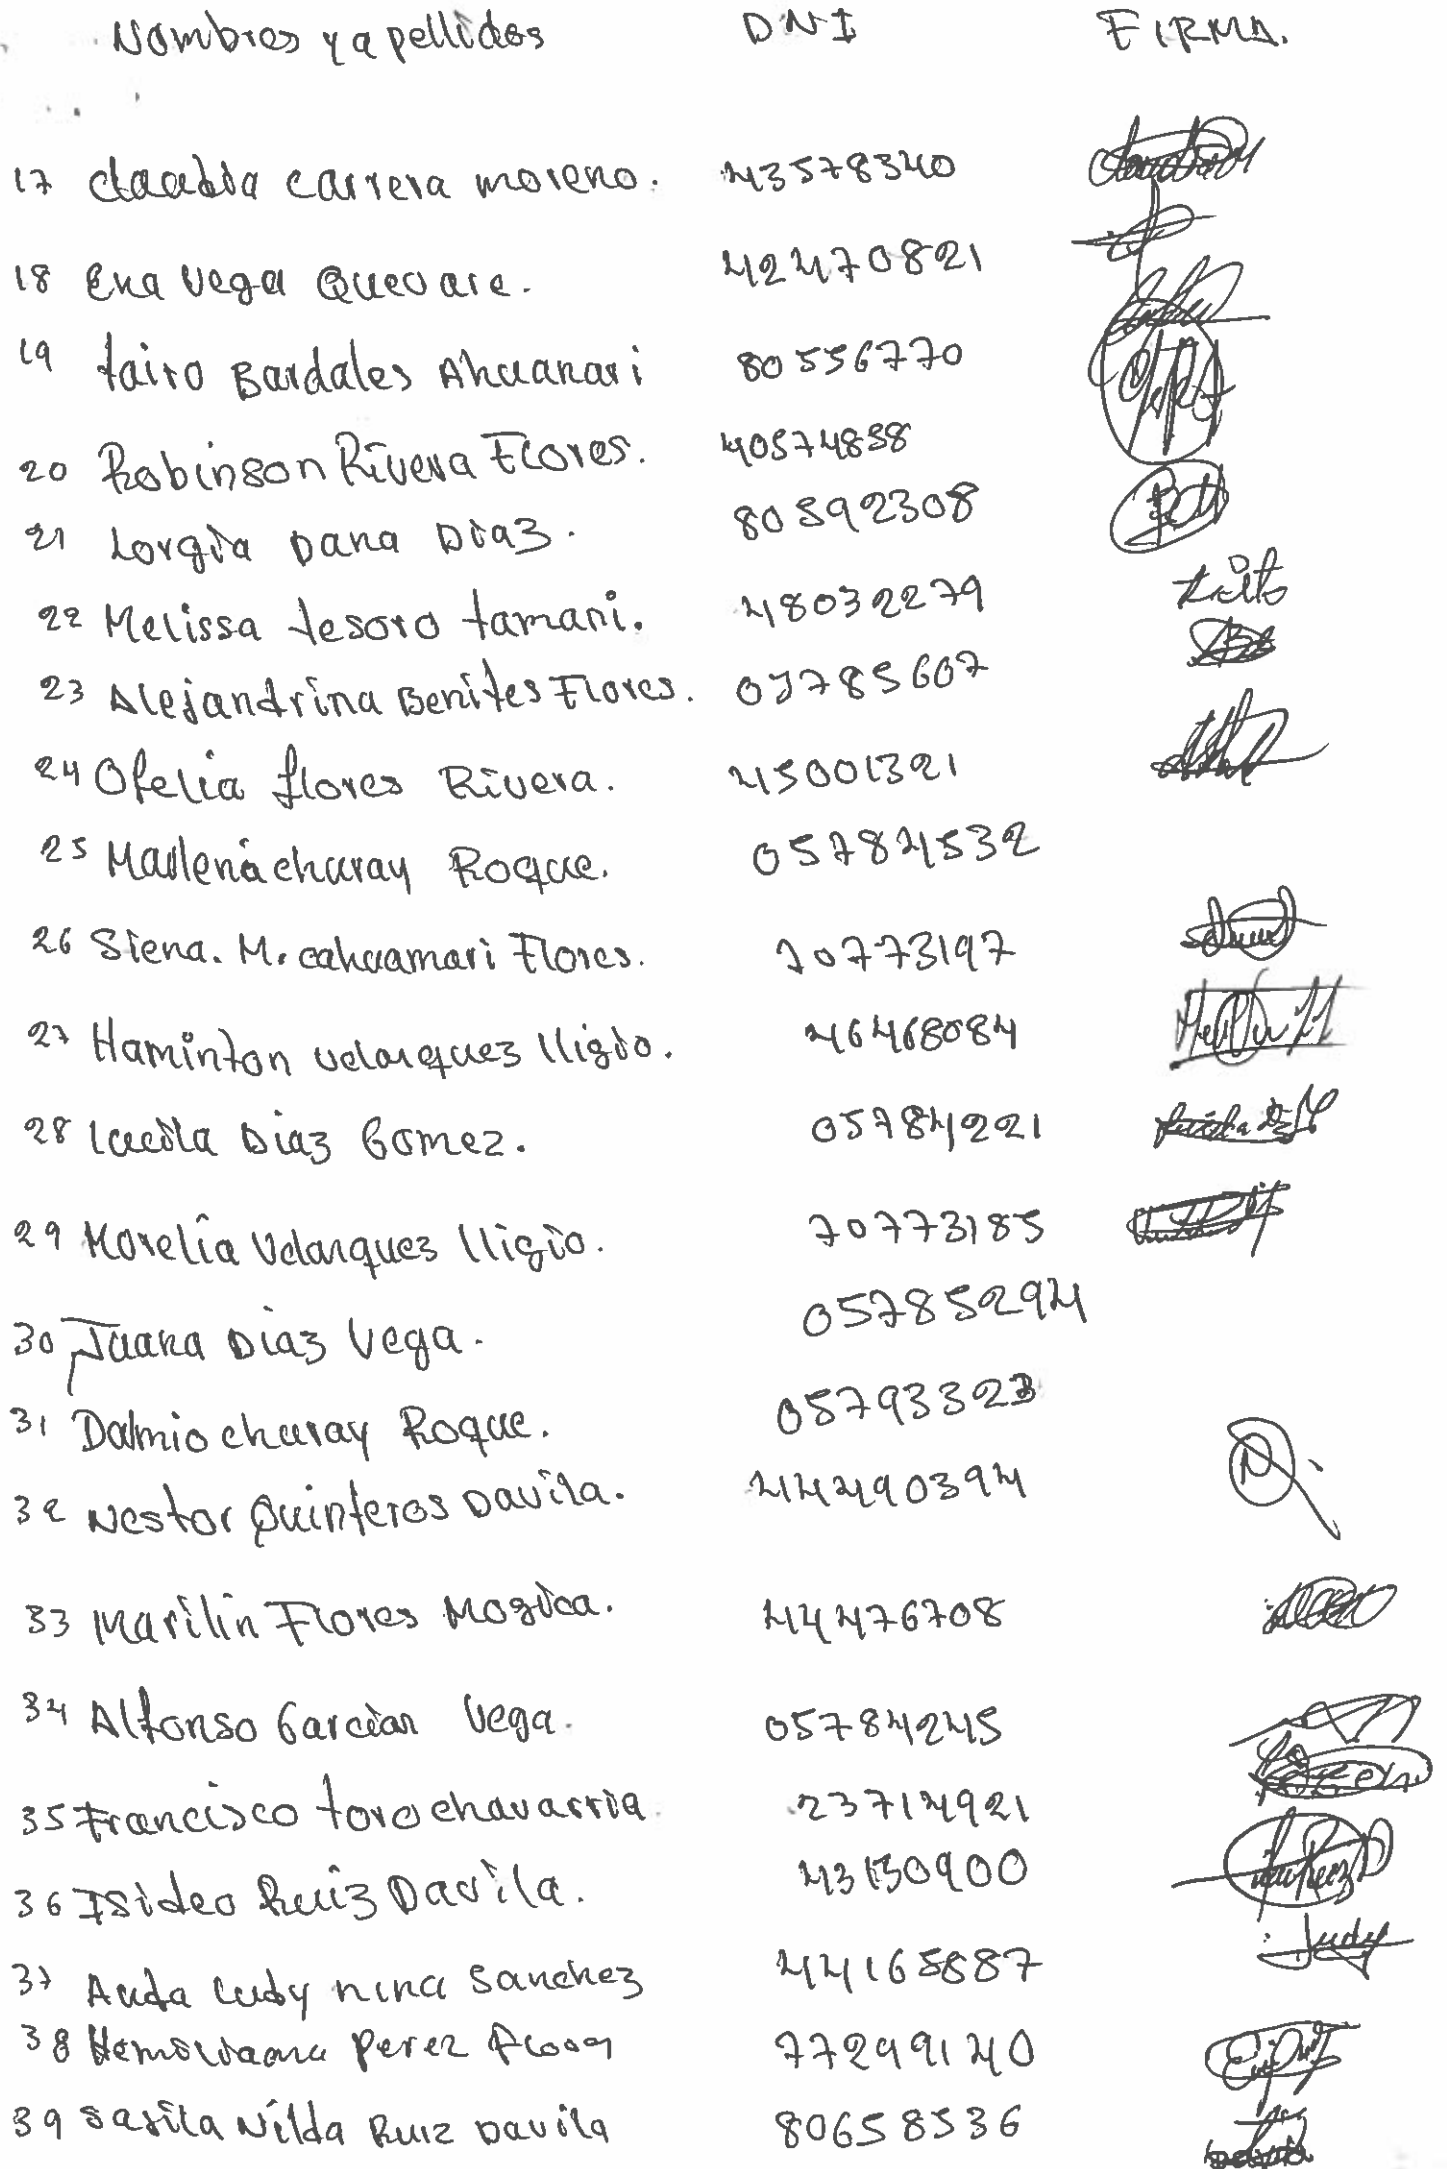 Nombres y apellidos DNI FIRMA.
17 claudia carrera moreno. 43578340
18 Ena Vega Quevare. 42470821
19 tairo Bardales Ahuanari 80556770
20 Robinson Rivera Flores. 40574858
21 Lorgia Dana Diaz. 80592308
22 Melissa tesoro tamani. 48032279
23 Alejandrina Benites Flores. 05785607
24 Ofelia flores Rivera. 45001321
25 Marlena churay Roque. 05784532
26 Siena. M. cahuamari Flores. 70773197
27 Haminton velarquez lligio. 46468084
28 lucila Diaz Gomez. 05784221
29 Morelia Velarquez lligio. 70773185
30 Juana Diaz Vega. 05785294
31 Dalmio churay Roque. 05793323
32 Nestor Quinteros Davila. 44490394
33 Marilin Flores Mogica. 44476708
34 Alfonso Garcia Vega. 05784245
35 Francisco toro chavarria 23714921
36 Isideo Ruiz Davila. 43130900
37 Auda ludy nina Sanchez 44165887 Judy
38 Perez 77299140
39 Sarila Nilda Ruiz Davila 80658536